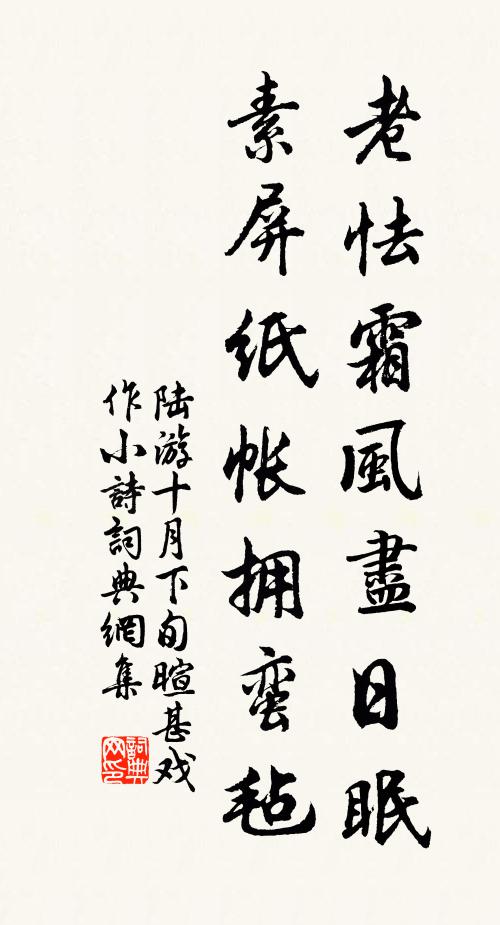 老怯霜風盡日眠
素屏纸帐拥蛮毡
陆游十月下旬暄甚戏
作小詩詞典網集
詞典网印